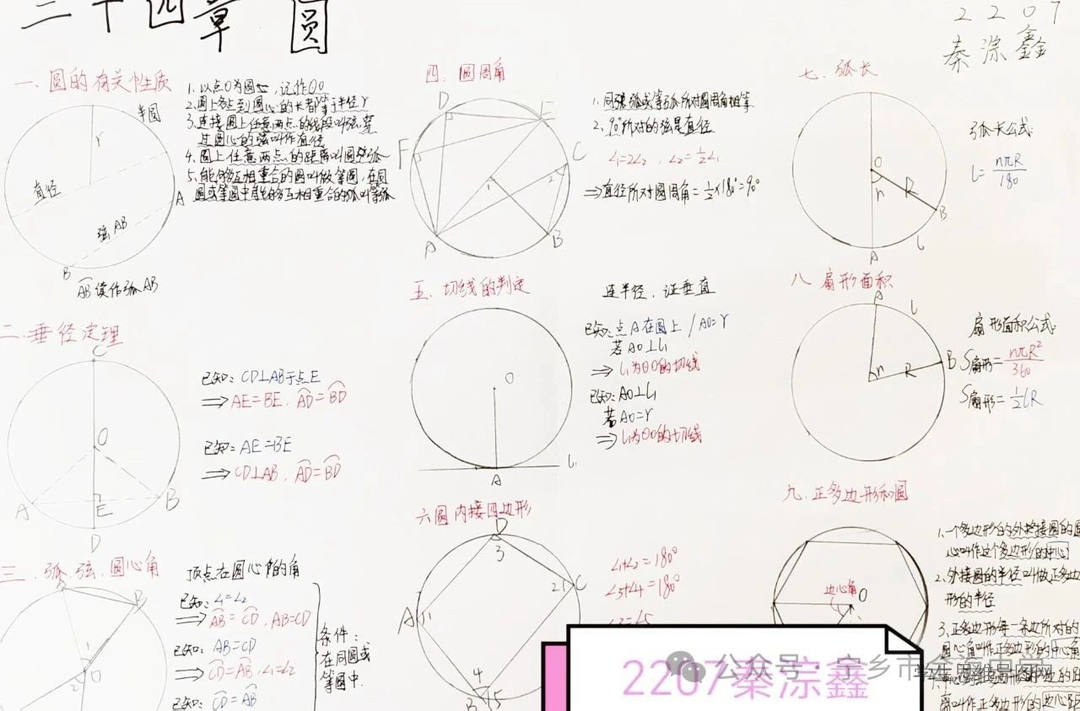 二十四章 圆
2207
秦淙鑫
一、圆的有关性质
1.以点O为圆心，记作⊙O
2.圆上各点到圆心的长都等于半径r
3.连接圆上任意两点的线段叫弦，穿
过圆心的弦叫作直径
4.圆上任意两点的距离叫圆弧
5.能够互相重合的圆叫做等圆，在同
圆或等圆中能够互相重合的弧叫等弧
半圆
r
直径
A
弦AB
B
AB读作弧AB
二、垂径定理
C
O
A
E
B
D
已知：CD⊥AB于点E
⇒AE=BE，AD=BD
已知：AE=BE
⇒CD⊥AB，AD=BD
三、弧、弦、圆心角
顶点在圆心的角
B
1
2
O
已知：∠1=∠2
⇒AB=CD，AB=CD
已知：AB=CD
⇒CD=AB，∠1=∠2
已知：CD=AB
条件：
在同圆或
等圆中.
四、圆周角
D
E
F
C
1
2
A
B
1.同弧或等弧所对圆周角相等
2.90°所对的弦是直径
∠1=2∠2，∠2=½∠1
⇒直径所对圆周角=½×180°=90°
五、切线的判定
O
A
连半径，证垂直
已知：点A在圆上/AO=r
若AO⊥l₁
⇒l₁为⊙O的切线
已知：AO⊥l₁
若AO=r
⇒l₁为⊙O的切线
六圆内接四边形
D
3
A
1
2
C
4
B
5
∠1+∠2=180°
∠3+∠4=180°
七、弧长
O
n
R
B
A
l
弧长公式：
l=nπR/180
八扇形面积
A
l
n
R
B
扇形面积公式：
S扇形=nπR²/360
S扇形=½lR
九、正多边形和圆
O
1.一个多边形的外接圆的圆
心叫作这个多边形的中心
2.外接圆的半径叫做正多边
形的半径
3.正多边形每一条边所对的
圆心角叫作正多边形的中心角
离叫作正多边形的边心距
2207秦淙鑫
公众号·宁乡市